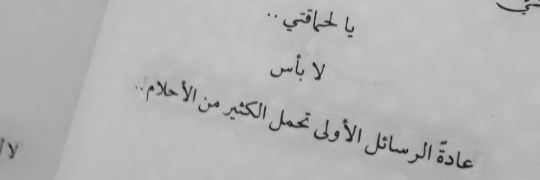 يا لحماقتي ..
لا بأس
عادةً الرسائل الأولى تحمل الكثير من الأحلام..